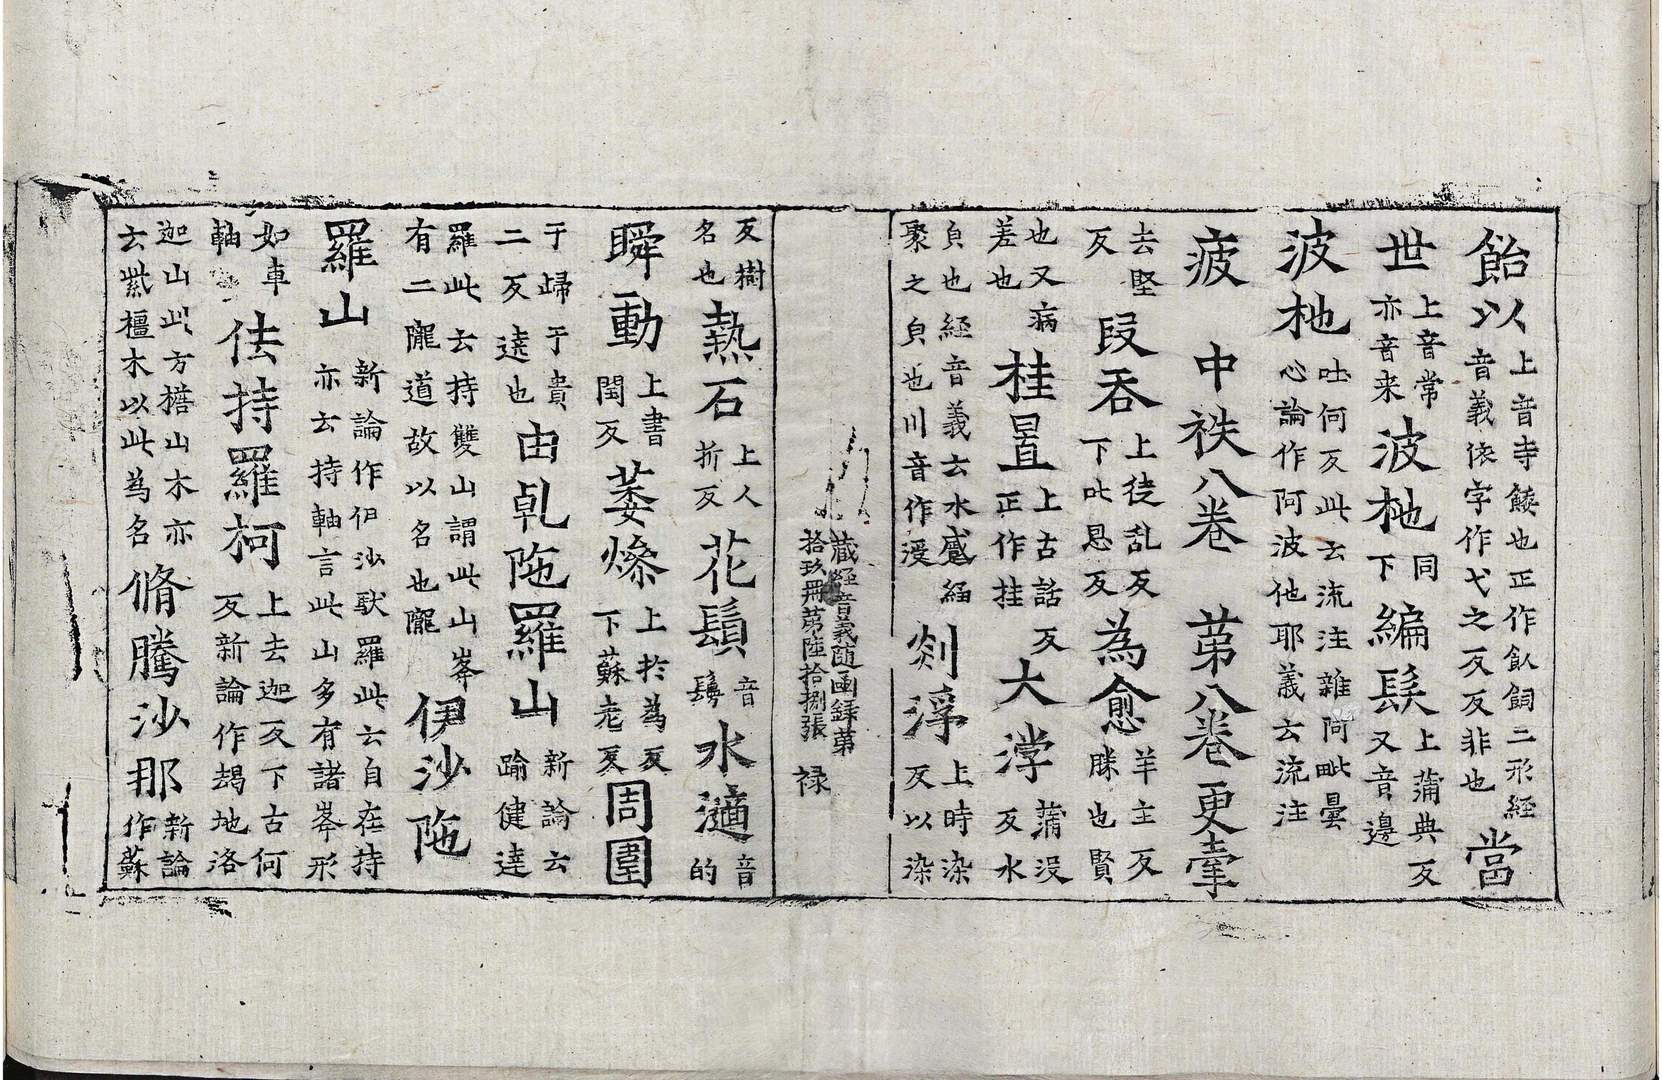 飴以上音寺餧也正作飤飼二形経音義依字作弋之反反非也當
世上音常亦音来波杝同下編髮上蒲典反又音邊
波杝吐何反此云流注雜阿毗曇心論作阿波他耶義云流注
疲 中袟八卷 苐八卷更牽
去堅反段吞上徒乱反下吐恩反為愈羊主反勝也賢
也又病差也桂置上古話反正作挂大浡蒲没反水
皃也経音義云水盛経聚之皃也川音作𣸈剡浮上時染反以染
藏経音義随函録苐
拾玖冊苐陸拾捌張 禄
反樹名也熱石上人折反花鬚音鬚水適音的
瞬動上書閏反萎燥上扵為反下蘇老反周圍
于歸于貴二反遶也由乹陁羅山新論云踰健達
羅此云持雙山謂此山峯有二隴道故以名也隴伊沙陁
羅山新論作伊沙馱羅此云自在持亦云持軸言此山多有諸峯形
如車軸佉持羅柯上去迦反下古何反新論作朅地洛
迦山此方檐山木亦云紫橿木以此為名脩騰沙那新論作蘇